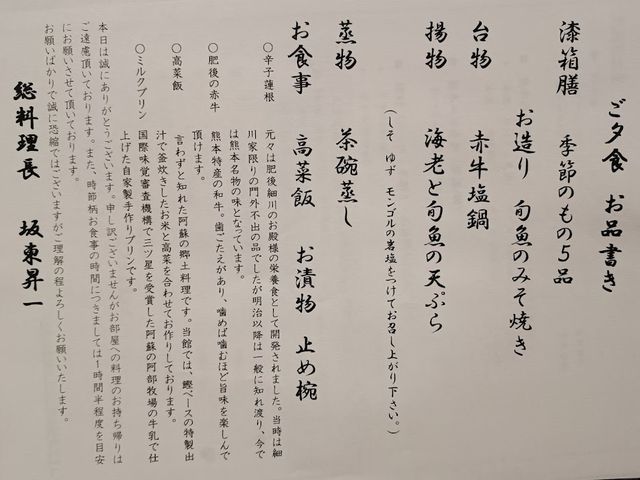 ご夕食 お品書き
漆箱膳 季節のもの5品
お造り 旬魚のみそ焼き
台物 赤牛塩鍋
揚物 海老と旬魚の天ぷら
(しそ ゆず モンゴルの岩塩をつけてお召し上がり下さい。)
蒸物 茶碗蒸し
お食事 高菜飯 お漬物 止め椀
○辛子蓮根 元々は肥後細川のお殿様の栄養食として開発されました。当時は細
川家限りの門外不出の品でしたが明治以降は一般に知れ渡り、今で
は熊本名物の味となっています。
○肥後の赤牛 熊本特産の和牛。歯ごたえがあり、噛めば噛むほど旨味を楽しんで
頂けます。
○高菜飯 言わずと知れた阿蘇の郷土料理です。当館では、鰹ベースの特製出
汁で釜炊きしたお米と高菜を合わせてお作りしております。
○ミルクプリン 国際味覚審査機構で三ツ星を受賞した阿蘇の阿部牧場の牛乳で仕
上げた自家製手作りプリンです。
本日は誠にありがとうございます。申し訳ございませんがお部屋への料理のお持ち帰りは
ご遠慮頂いております。また、時節柄お食事の時間につきましては1時間半程度を目安
にお願いさせて頂いております。
お願いばかりで誠に恐縮ではございますがご理解の程よろしくお願いいたします。
総料理長 坂東昇一